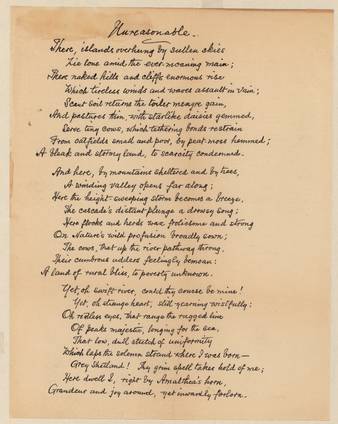 Unreasonable.
There, islands overhung by sullen skies
Lie lone amid the ever-moaning main;
There naked hills and cliffs enormous rise
Which tireless winds and waves assault in vain;
Scant soil returns the toiler meagre gain,
And pastures thin, with starlike daisies gemmed,
Serve tiny cows, which tethering bonds restrain
From oatfields small and poor, by peat moss hemmed;
A bleak and stormy land, to scarcity condemned.
And here, by mountains sheltered and by trees,
A winding valley opens far along;
Here the height-sweeping storm becomes a breeze,
The cascade's distant plunge a drowsy song;
Here flocks and herds wax frolicsome and strong
On Nature's wild profusion broadly sown;
The cows, that up the river pathway throng,
Their cumbrous udders feelingly bemoan:
A land of rural bliss, to poverty unknown.
Yet, oh swift river, could thy course be mine!
Yet, oh strange heart, still yearning wistfully;
Oh restless eyes, that range the rugged line
Of peaks majestic, longing for the sea,
That low, dull stretch of uniformity
Which laps the solemn strand where I was born—
Grey Shetland! Thy grim spell takes hold of me;
Here dwell I, right by Amalthea's horn,
Grandeur and joy around, yet inwardly forlorn.